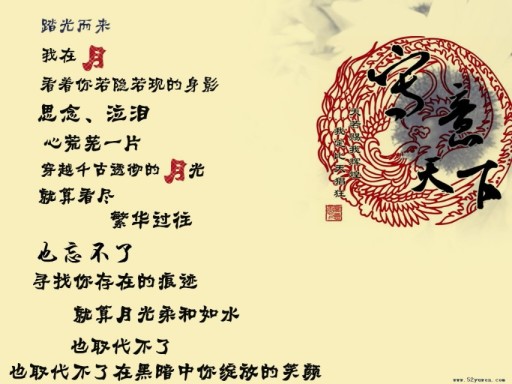 踏光而来
我在月
看着你若隐若现的身影
思念、泣泪
心荒芜一片
穿越千古透彻的月光
就算看尽
繁华过往
也忘不了
寻找你存在的痕迹
就算月光柔和如水
也取代不了
也取代不了在黑暗中你绽放的笑颜
写意天下
天若怪我辉煌
我定让天猖狂
www.52yuwen.com